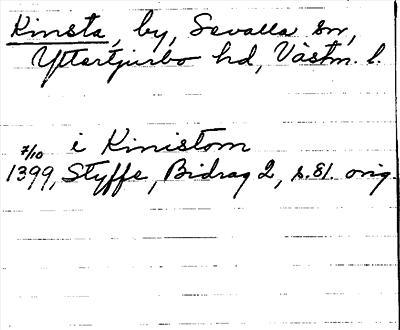 Kinsta, by, Sevalla sn,
Ytertjurbo hd, Västm. l.
i Kinistom
7/10
1399, Styffe, Bidrag 2, s. 81. orig.